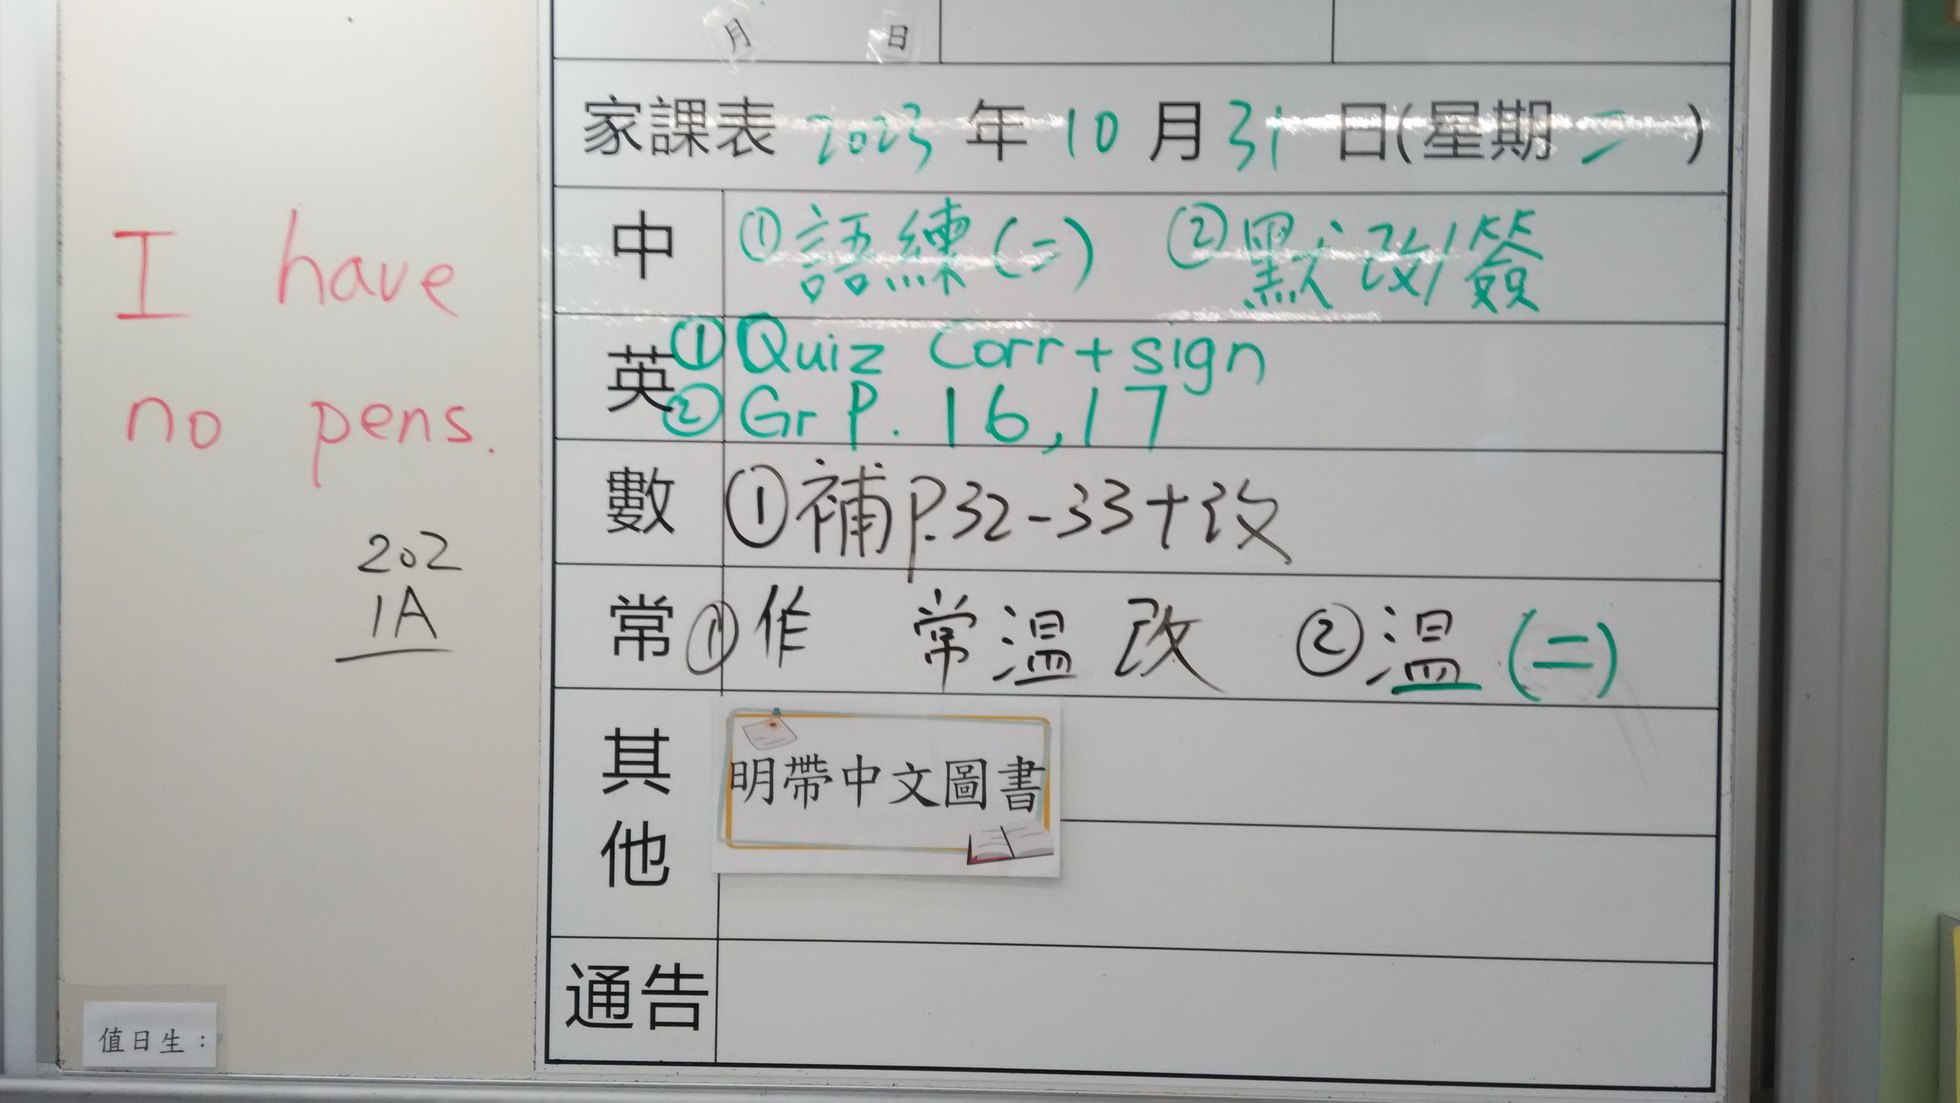 月 日
家課表 2023 年 10 月 31 日(星期 二 )
I have
no pens.
202
1A
中 ①語練(二) ②默改/簽
英 ①Quiz Corr + sign
②Gr P. 16,17
數 ①補P.32-33+改
常 ①作 常溫改 ②溫(二)
其他 明帶中文圖書
通告
值日生：